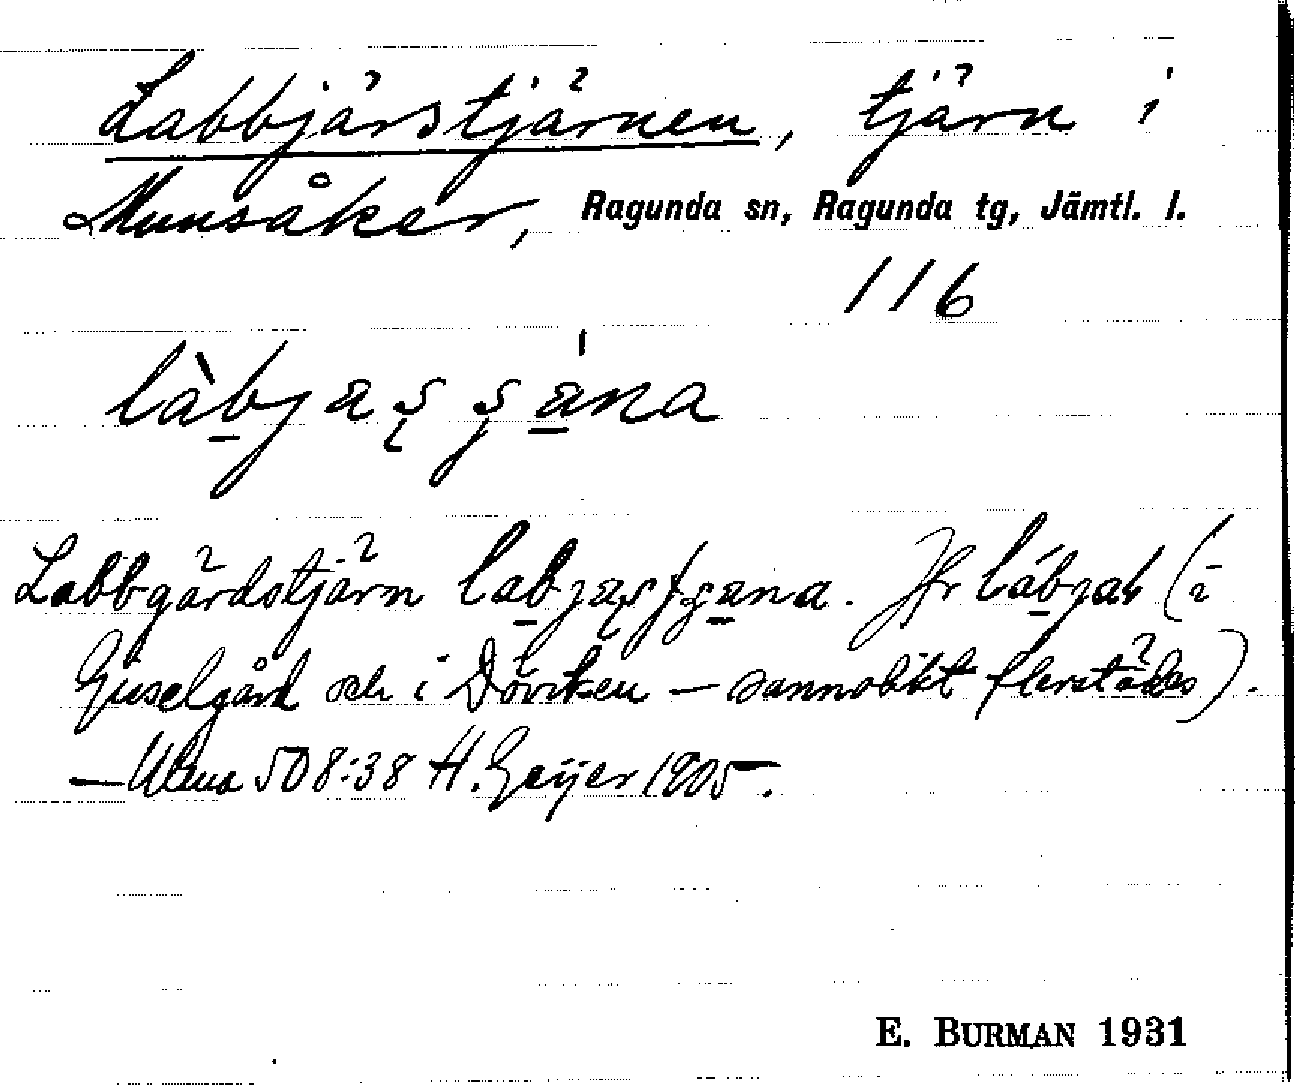 Labbjärstjärnen, tjärn i
Munsåker, Ragunda sn, Ragunda tg, Jämtl. l.
116
Labbgärdstjärn Jfr (i
Gisselgård och i Döviken – sannolikt flerstädes).
— Ulma 508:38 H. Geijer 1905.
E. BURMAN 1931